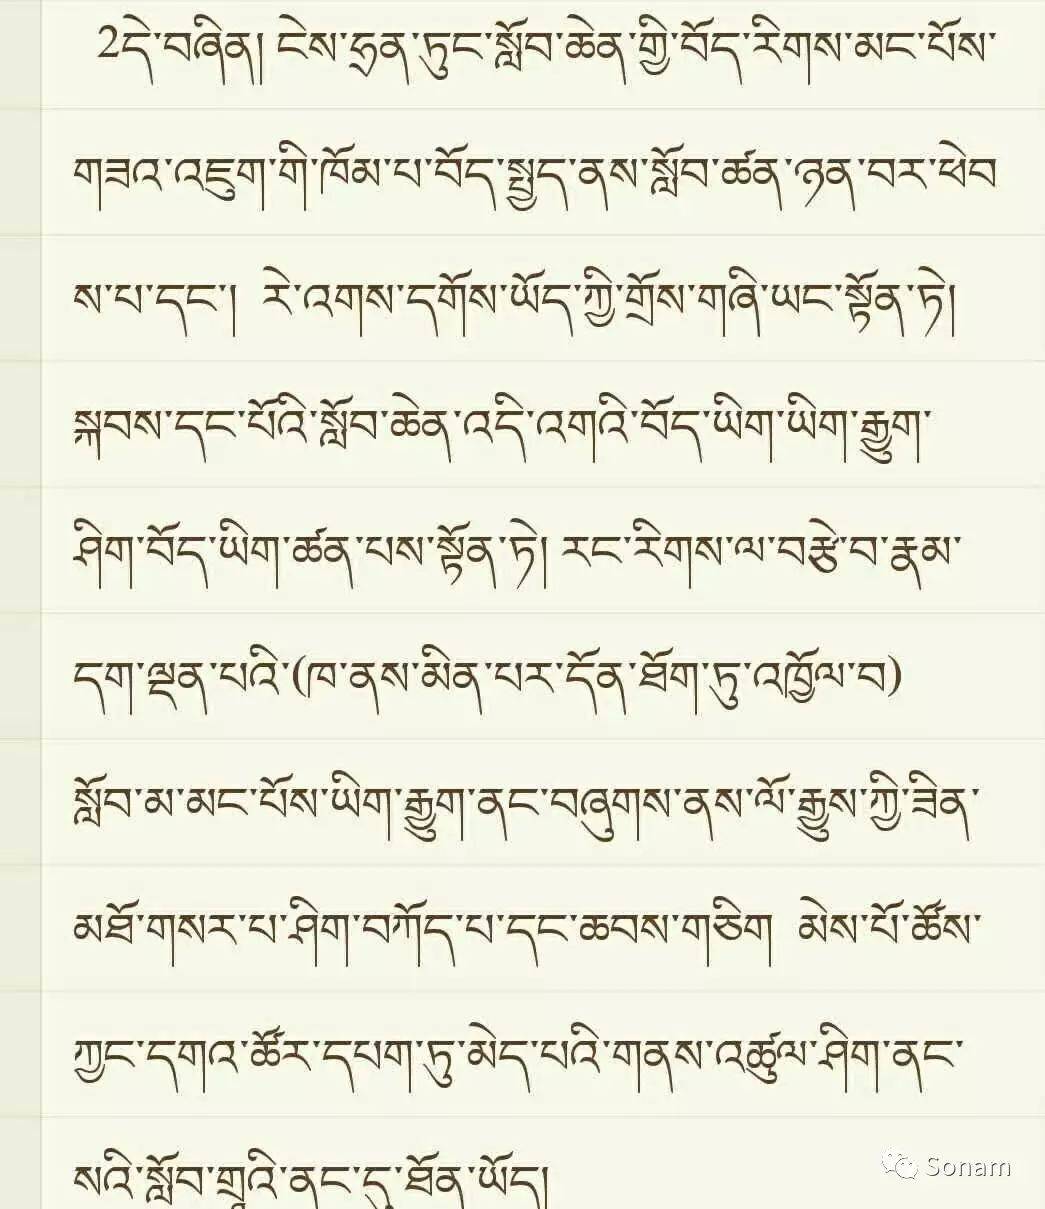 2དེ་བཞིན། ངེས་ཧྲན་ཏུང་སློབ་ཆེན་གྱི་བོད་རིགས་མང་པོས་
གཟའ་འཇུག་གི་ཁོམ་པ་བོད་སྤྱད་ནས་སློབ་ཚན་ཉན་བར་ཕེབ
ས་པ་དང་། རེ་འགས་དགོས་ཡོད་ཀྱི་གྲོས་གཞི་ཡང་སྟོན་ཏེ།
སྐབས་དང་པོའི་སློབ་ཆེན་འདི་འགའི་བོད་ཡིག་ཡིག་རྒྱུག་
ཤིག་བོད་ཡིག་ཚན་པས་སྟོན་ཏེ། རང་རིགས་ལ་བརྩེ་བ་རྣམ་
དག་ལྡན་པའི་(ཁ་ནས་མིན་པར་དོན་ཐོག་ཏུ་འཁྱོལ་བ)
སློབ་མ་མང་པོས་ཡིག་རྒྱུག་ནང་བཞུགས་ནས་ལོ་རྒྱུས་ཀྱི་ཟིན་
མཐོ་གསར་པ་ཤིག་བཀོད་པ་དང་ཆབས་གཅིག མེས་པོ་ཚོས་
ཀྱང་དགའ་ཚོར་དཔག་ཏུ་མེད་པའི་གནས་འཚུལ་ཤིག་ནང་
སའི་སློབ་གྲྭའི་ནང་དུ་ཐོན་ཡོད།
Sonam